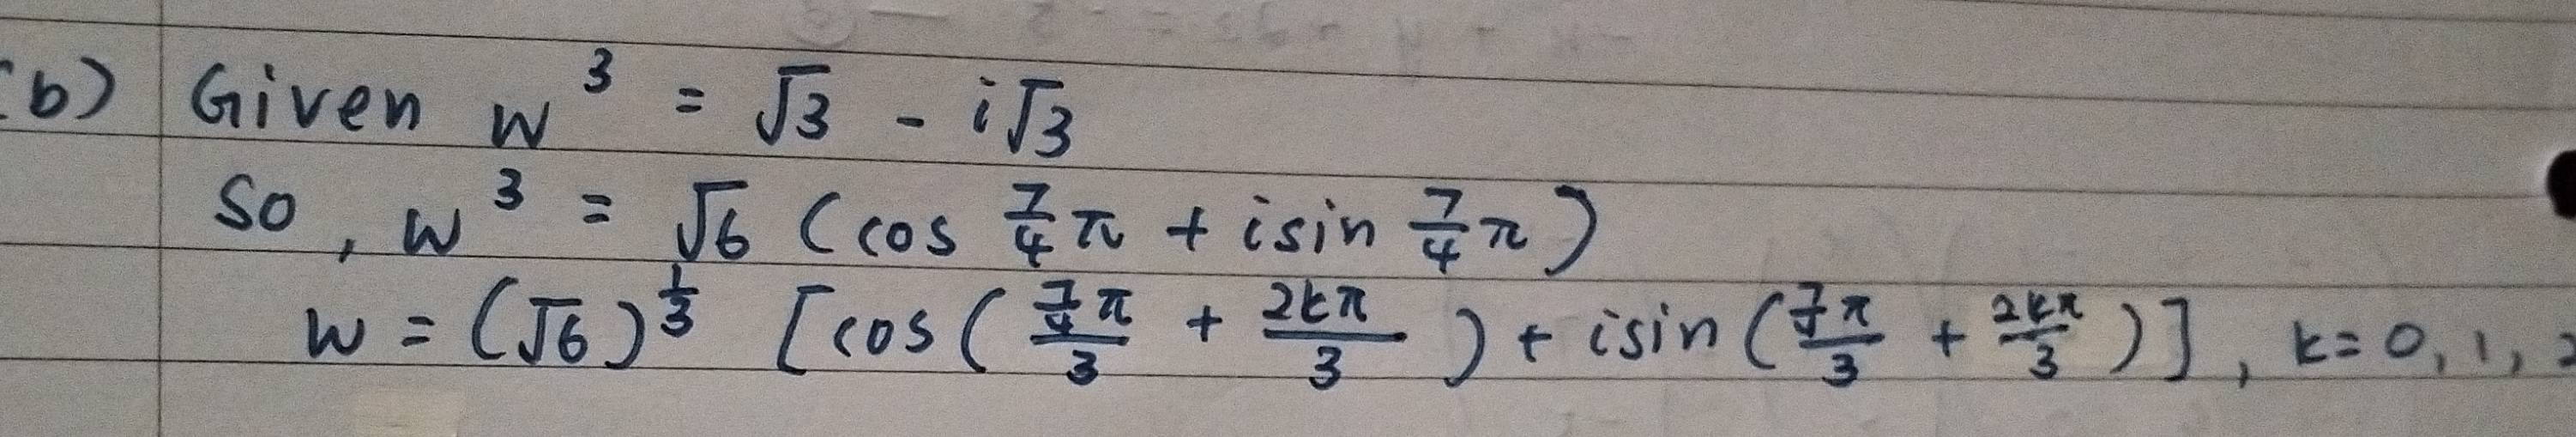 (b) Given w³ = √3 - i√3
So, w³ = √6 (cos 7/4 π + isin 7/4 π)
w = (√6)^(1/3) [cos( (7/4 π)/3 + 2kπ/3 ) + isin( (7/4 π)/3 + 2kπ/3 )], k = 0, 1, 2